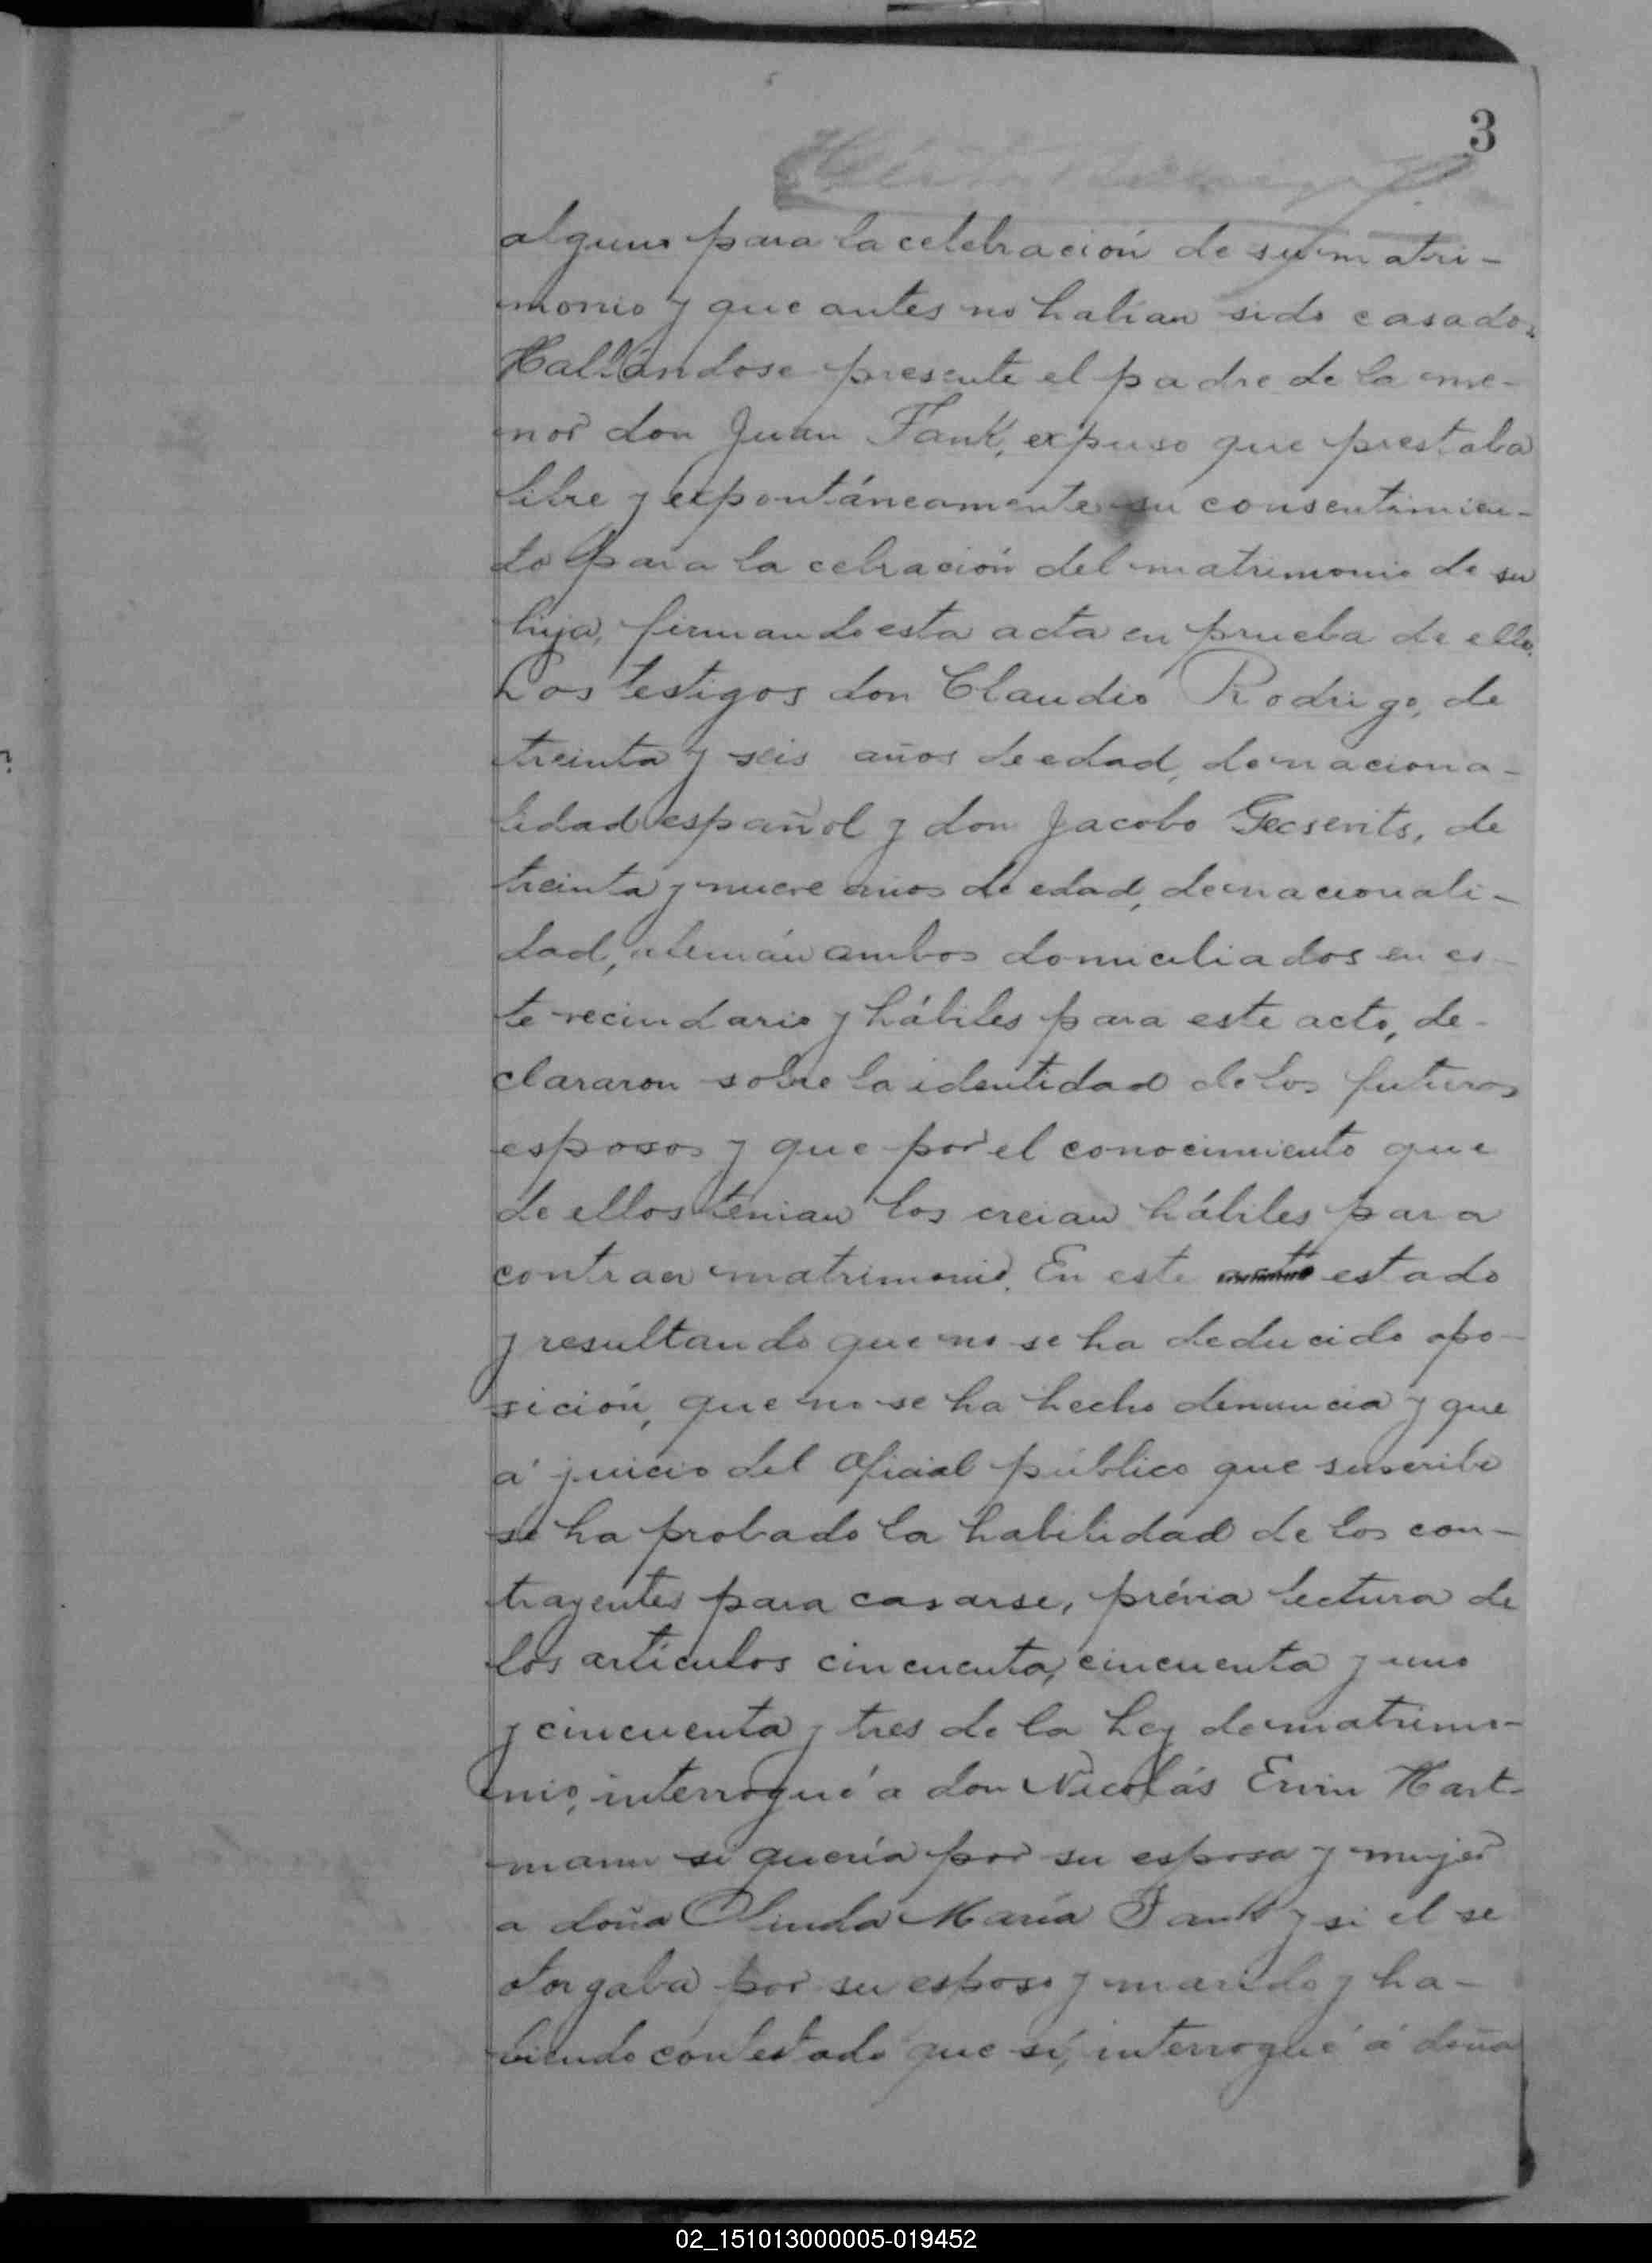 3
alguno para la celebración de su matri-
monio y que antes no habían sido casados.
Hallándose presente el padre de la me-
nor don Juan Fank, expuso que prestaba
libre y expontáneamente su consentimien-
to para la celración del matrimonio de su
hija, firmando esta acta en prueba de ello.
Los testigos don Claudio Rodrigo, de
treinta y seis años de edad, de naciona-
lidad español y don Jacobo Gecserits, de
treinta y nueve años de edad, de nacionali-
dad, alemán ambos domiciliados en es-
te vecindario y hábiles para este acto, de-
clararon sobre la identidad de los futuros
esposos y que por el conocimiento que
de ellos tenian los creian hábiles para
contraer matrimonio. En este acto estado
y resultando que no se ha deducido opo-
sición, que no se ha hecho denuncia y que
a' juicio del Oficial público que suscribe
se ha probado la habilidad de los con-
trayentes para casarse, prévia lectura de
los artículos cincuenta, cincuenta y uno
y cincuenta y tres de la Ley de matrimo-
nio, interrogué a don Nicolás Ervin Hart-
mann si quería por su esposa y mujer
a doña Olinda María Fank y si el se
otorgaba por su esposo y marido y ha-
biendo contestado que sí, interrogué á doña
02_151013000005-019452